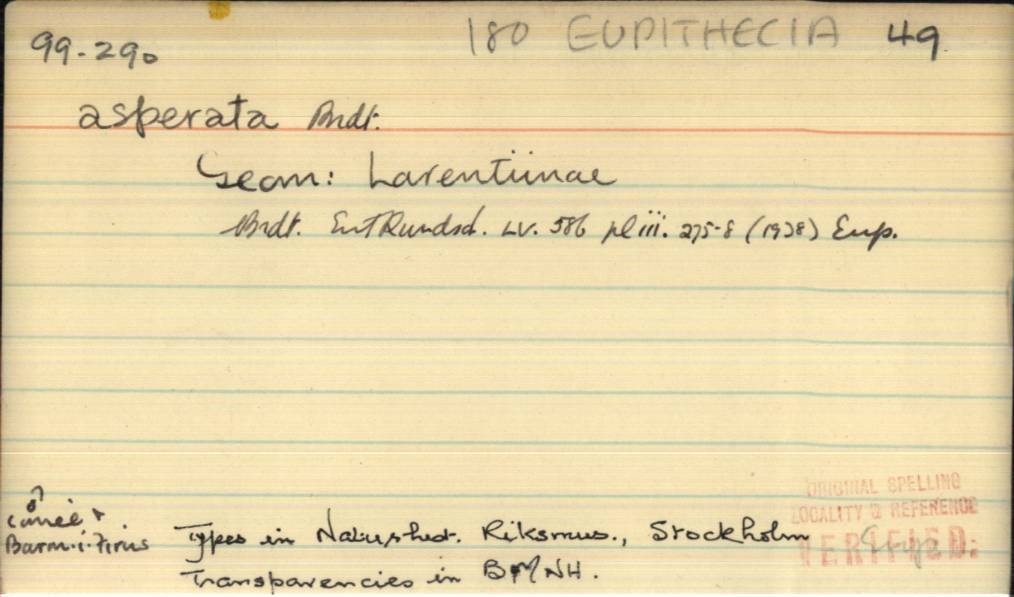 99-290
180 EUPITHECIA 49
asperata Brdt.
Geom: Larentiinae
Brdt. Ent Rundsch. LV. 586 pl iii. 275-8 (1938) Eup.
♂
Barm-i-Firus
Types in Naturhist. Riksmus., Stockholm
Transparencies in BMNH.
ORIGINAL SPELLING
LOCALITY & REFERENCE
VERIFIED.